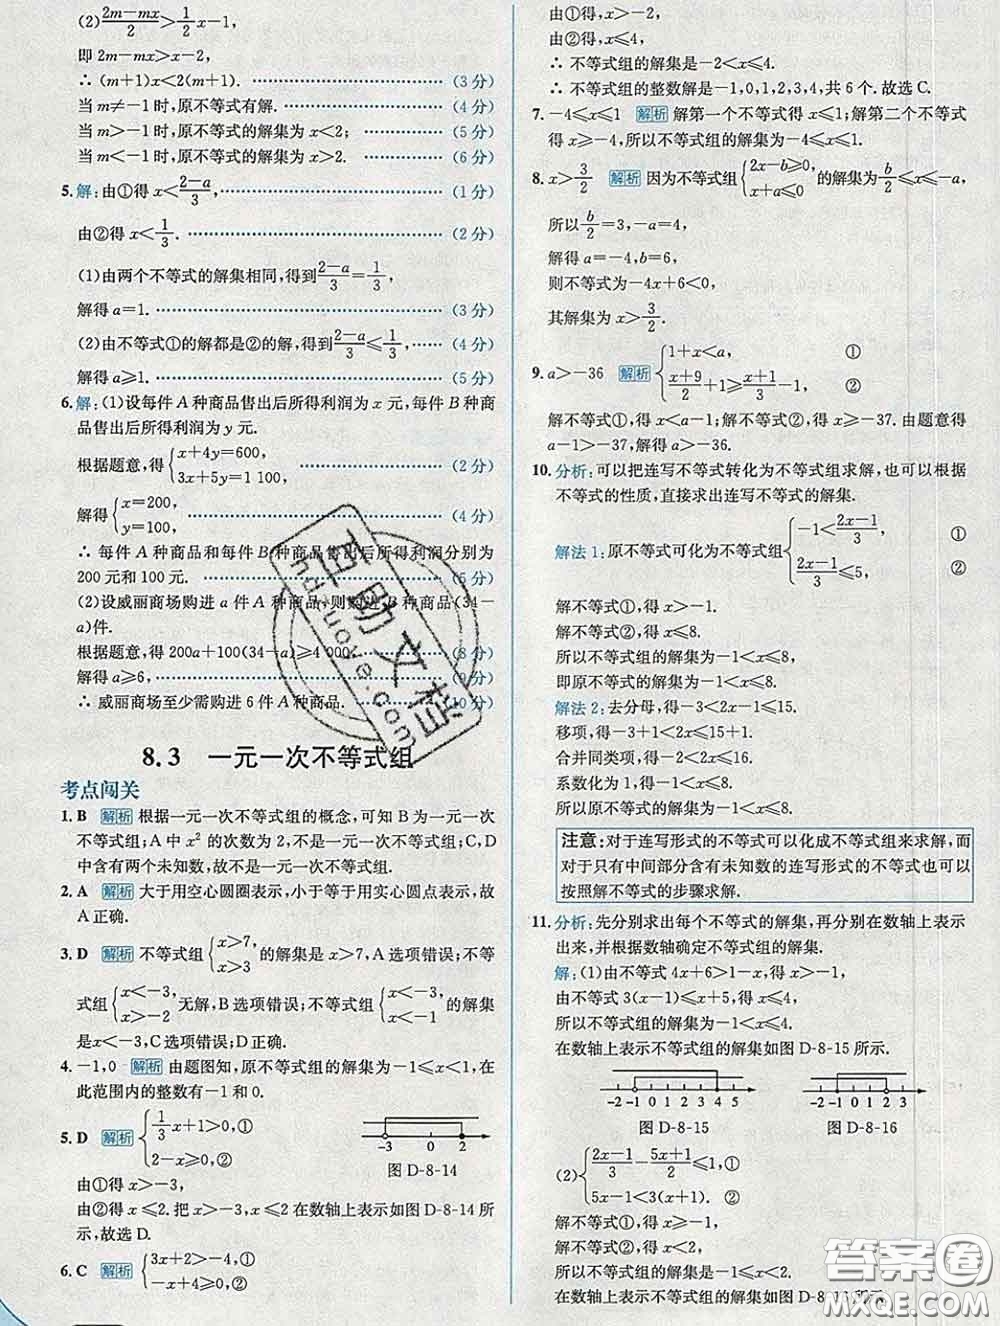 (2) (2m-mx)/2>1/2x-1,
即 2m-mx>x-2,
∴ (m+1)x<2(m+1). ……(3 分)
当 m≠-1时,原不等式有解. ……(4 分)
当 m>-1时,原不等式的解集为 x<2; ……(5 分)
当 m<-1时,原不等式的解集为 x>2. ……(6 分)
5. 解:由①得 x<(2-a)/3, ……(1 分)
由②得 x<1/3. ……(2 分)
(1)由两个不等式的解集相同,得到(2-a)/3=1/3,
解得 a=1. ……(3 分)
(2)由不等式①的解都是②的解,得到(2-a)/3≤1/3, ……(4 分)
解得 a≥1. ……(5 分)
6. 解:(1)设每件 A 种商品售出后所得利润为 x 元,每件 B 种商
品售出后所得利润为 y 元.
根据题意,得{x+4y=600, 3x+5y=1 100, ……(2 分)
解得{x=200, y=100, ……(4 分)
∴ 每件 A 种商品和每件 B 种商品售出后所得利润分别为
200 元和 100 元. ……(5 分)
(2)设威丽商场购进 a 件 A 种商品,则购进 B 种商品(34-
a)件.
根据题意,得 200a+100(34-a)≥4 000, ……(8 分)
解得 a≥6, ……(9 分)
∴ 威丽商场至少需购进 6 件 A 种商品. ……(10 分)
8.3 一元一次不等式组
考点闯关
1. B 解析 根据一元一次不等式组的概念,可知 B 为一元一次
不等式组;A 中 x² 的次数为 2,不是一元一次不等式组;C,D
中含有两个未知数,故不是一元一次不等式组.
2. A 解析 大于用空心圆圈表示,小于等于用实心圆点表示,故
A 正确.
3. D 解析 不等式组{x>7, x>3 的解集是 x>7,A 选项错误;不等
式组{x<-3, x>-2 无解,B 选项错误;不等式组{x<-3, x<-1 的解集
是 x<-3,C 选项错误;D 正确.
4. -1,0 解析 由题图知,原不等式组的解集为-1≤x<1,在
此范围内的整数有-1 和 0.
5. D 解析 {1/3x+1>0,① 2-x≥0,②
-3 0 2
图 D-8-14
由①得 x>-3,
由②得 x≤2.把 x>-3,x≤2 在数轴上表示如图 D-8-14 所
示,故选 D.
6. C 解析 {3x+2>-4,① -x+4≥0,②
由①得,x>-2,
由②得,x≤4.
∴ 不等式组的解集是-2<x≤4.
∴ 不等式组的整数解是-1,0,1,2,3,4,共 6 个.故选 C.
7. -4≤x≤1 解析 解第一个不等式得 x≤1;解第二个不等式
得 x≥-4,所以不等式组的解集为-4≤x≤1.
8. x>3/2 解析 因为不等式组{2x-b≥0, x+a≤0 的解集为b/2≤x≤-a,
所以b/2=3,-a=4,
解得 a=-4,b=6,
则不等式为-4x+6<0,
其解集为 x>3/2.
9. a>-36 解析 {1+x<a, ① (x+9)/2+1≥(x+1)/3-1, ②
解不等式①,得 x<a-1;解不等式②,得 x≥-37. 由题意得
a-1>-37,解得 a>-36.
10. 分析:可以把连写不等式转化为不等式组求解,也可以根据
不等式的性质,直接求出连写不等式的解集.
解法 1:原不等式可化为不等式组{-1<(2x-1)/3, ① (2x-1)/3≤5, ②
解不等式①,得 x>-1.
解不等式②,得 x≤8.
所以不等式组的解集为-1<x≤8,
即原不等式的解集为-1<x≤8.
解法 2:去分母,得-3<2x-1≤15.
移项,得-3+1<2x≤15+1.
合并同类项,得-2<2x≤16.
系数化为 1,得-1<x≤8.
所以原不等式的解集为-1<x≤8.
注意:对于连写形式的不等式可以化成不等式组来求解,而
对于只有中间部分含有未知数的连写形式的不等式也可以
按照解不等式的步骤求解.
11. 分析:先分别求出每个不等式的解集,再分别在数轴上表示
出来,并根据数轴确定不等式组的解集.
解:(1)由不等式 4x+6>1-x,得 x>-1,
由不等式 3(x-1)≤x+5,得 x≤4,
所以不等式组的解集为-1<x≤4.
在数轴上表示不等式组的解集如图 D-8-15 所示.
-2 -1 0 1 2 3 4 5
图 D-8-15
-2 -1 0 1 2 3
图 D-8-16
(2){(2x-1)/3-(5x+1)/2≤1,① 5x-1<3(x+1). ②
解不等式①,得 x≥-1,
解不等式②,得 x<2.
所以不等式组的解集是-1≤x<2.
在数轴上表示不等式组的解集如图 D-8-16 所示
百助文档
答案圈
MXQE.COM